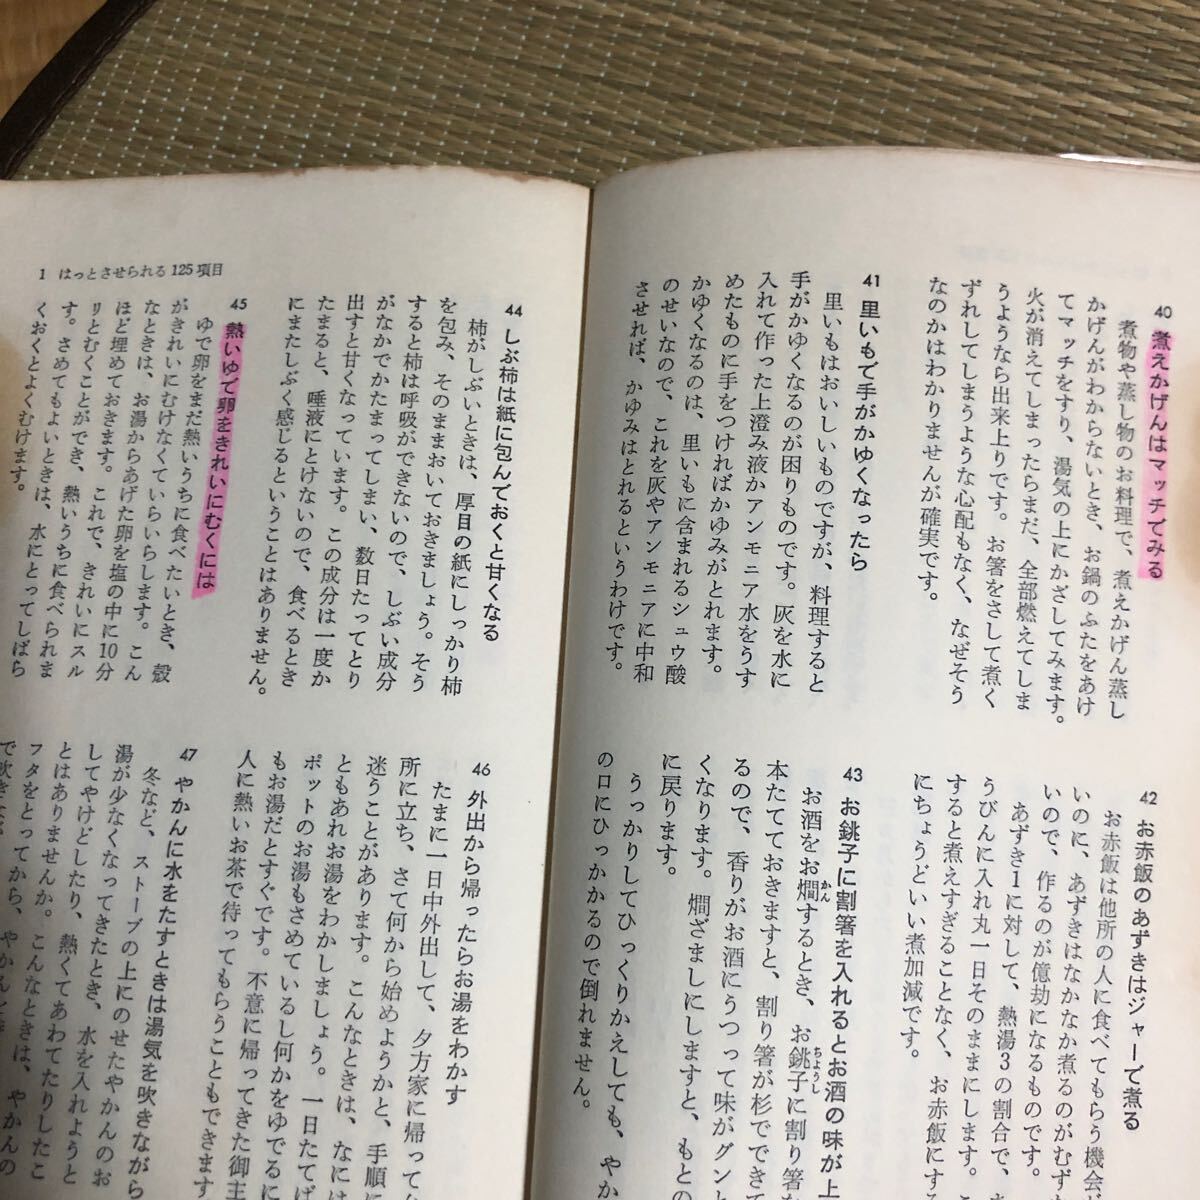 40 煮えかげんはマッチでみる
煮物や蒸し物のお料理で、煮えかげん蒸し
かげんがわからないとき、お鍋のふたをあけ
てマッチをすり、湯気の上にかざしてみます。
火が消えてしまったらまだ、全部燃えてしま
うようなら出来上りです。お箸をさして煮く
ずれしてしまうような心配もなく、なぜそう
なのかはわかりませんが確実です。
41 里いもで手がかゆくなったら
里いもはおいしいものですが、料理すると
手がかゆくなるのが困りものです。灰を水に
入れて作った上澄み液かアンモニア水をうす
めたものに手をつければかゆみがとれます。
かゆくなるのは、里いもに含まれるシュウ酸
のせいなので、これを灰やアンモニアに中和
させれば、かゆみはとれるというわけです。
42 お赤飯のあずきはジャーで煮る
お赤飯は他所の人に食べてもらう機会
いのに、あずきはなかなか煮るのがむずか
いので、作るのが億劫になるものです。
あずき1に対して、熱湯3の割合で、
うびんに入れ丸一日そのままにします。こ
すると煮えすぎることなく、お赤飯にす
にちょうどいい煮加減です。
43 お銚子に割箸を入れるとお酒の味が上
お酒をお燗するとき、お銚子に割り箸
かん
ちょうし
本たてておきますと、割り箸が杉でできて
るので、香りがお酒にうつって味がグンと
くなります。燗ざましにしますと、もとの
に戻ります。
うっかりしてひっくりかえしても、やか
の口にひっかかるので倒れません。
1 はっとさせられる125項目
44 しぶ柿は紙に包んでおくと甘くなる
柿がしぶいときは、厚目の紙にしっかり柿
を包み、そのままおいておきましょう。そう
すると柿は呼吸ができないので、しぶい成分
がなかでかたまってしまい、数日たってとり
出すと甘くなっています。この成分は一度か
たまると、唾液にとけないので、食べるとき
にまたしぶく感じるということはありません。
45 熱いゆで卵をきれいにむくには
ゆで卵をまだ熱いうちに食べたいとき、殻
がきれいにむけなくていらいらします。こん
なときは、お湯からあげた卵を塩の中に10分
ほど埋めておきます。これで、きれいにスル
リとむくことができ、熱いうちに食べられま
す。さめてもよいときは、水にとってしばら
くおくとよくむけます。
46 外出から帰ったらお湯をわかす
たまに一日中外出して、夕方家に帰って
所に立ち、さて何から始めようかと、手順に
迷うことがあります。こんなときは、なには
ともあれお湯をわかしましょう。一日たてば
ポットのお湯もさめているし何かをゆでるに
もお湯だとすぐです。不意に帰ってきた御主
人に熱いお茶で待ってもらうこともできます
47 やかんに水をたすときは湯気を吹きながら
冬など、ストーブの上にのせたやかんのお
湯が少なくなってきたとき、水を入れようと
してやけどしたり、熱くてあわてたりしたこ
とはありませんか。こんなときは、やかんの
フタをとってから、やかん
で吹き